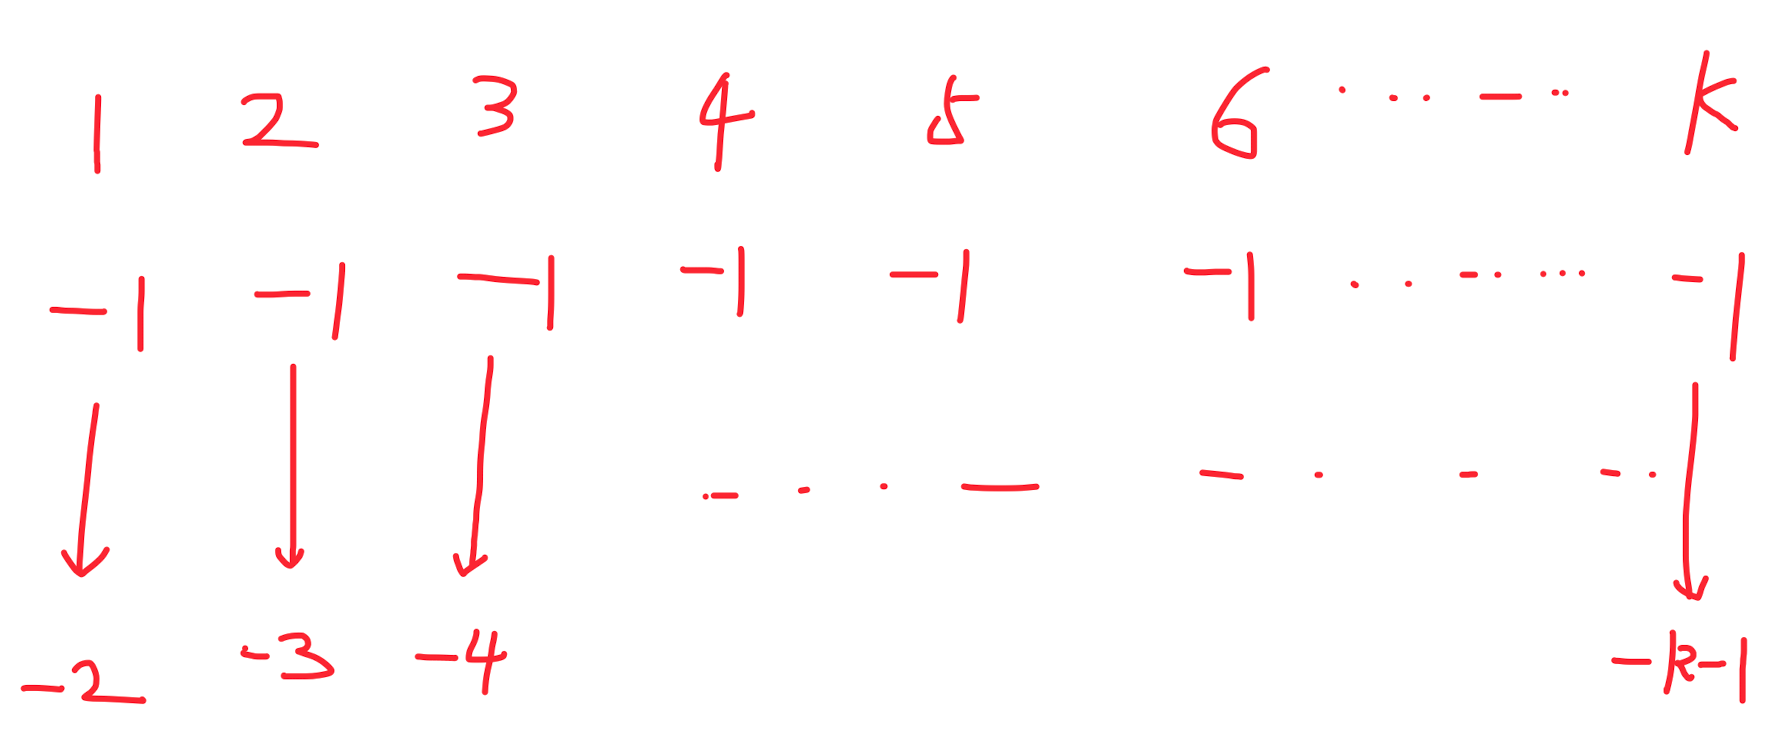 1 2 3 4 5 6 . . . — .. K
-1 -1 -1 -1 -1 -1 . . - . ... -1
-2 -3 -4 -k-1